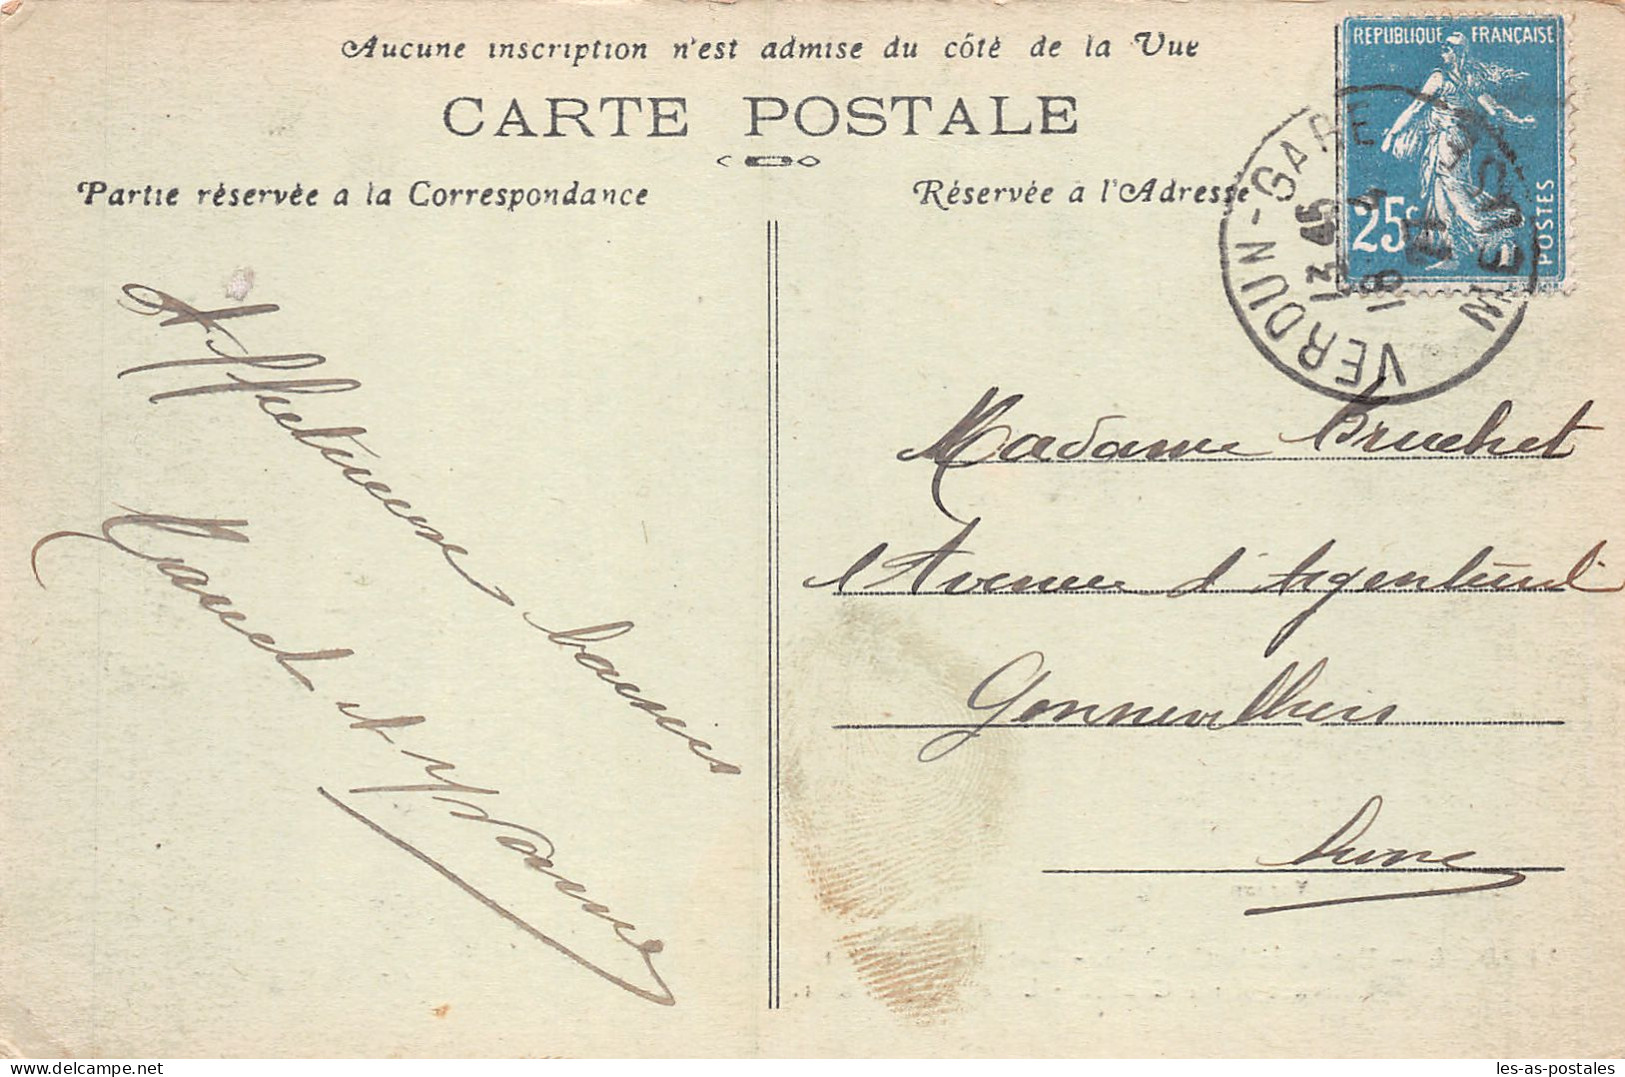 Aucune inscription n'est admise du côté de la Vue
CARTE POSTALE
Partie réservée a la Correspondance
Réservée à l'Adresse
REPUBLIQUE FRANÇAISE
25c
POSTES
VERDUN-GARE
MEUSE
13 45
18
Affectueux baisers
et Yvonne
Madame Bruchet
Avenue d'Argenteuil
Gennevilliers
Seine
les-as-postales